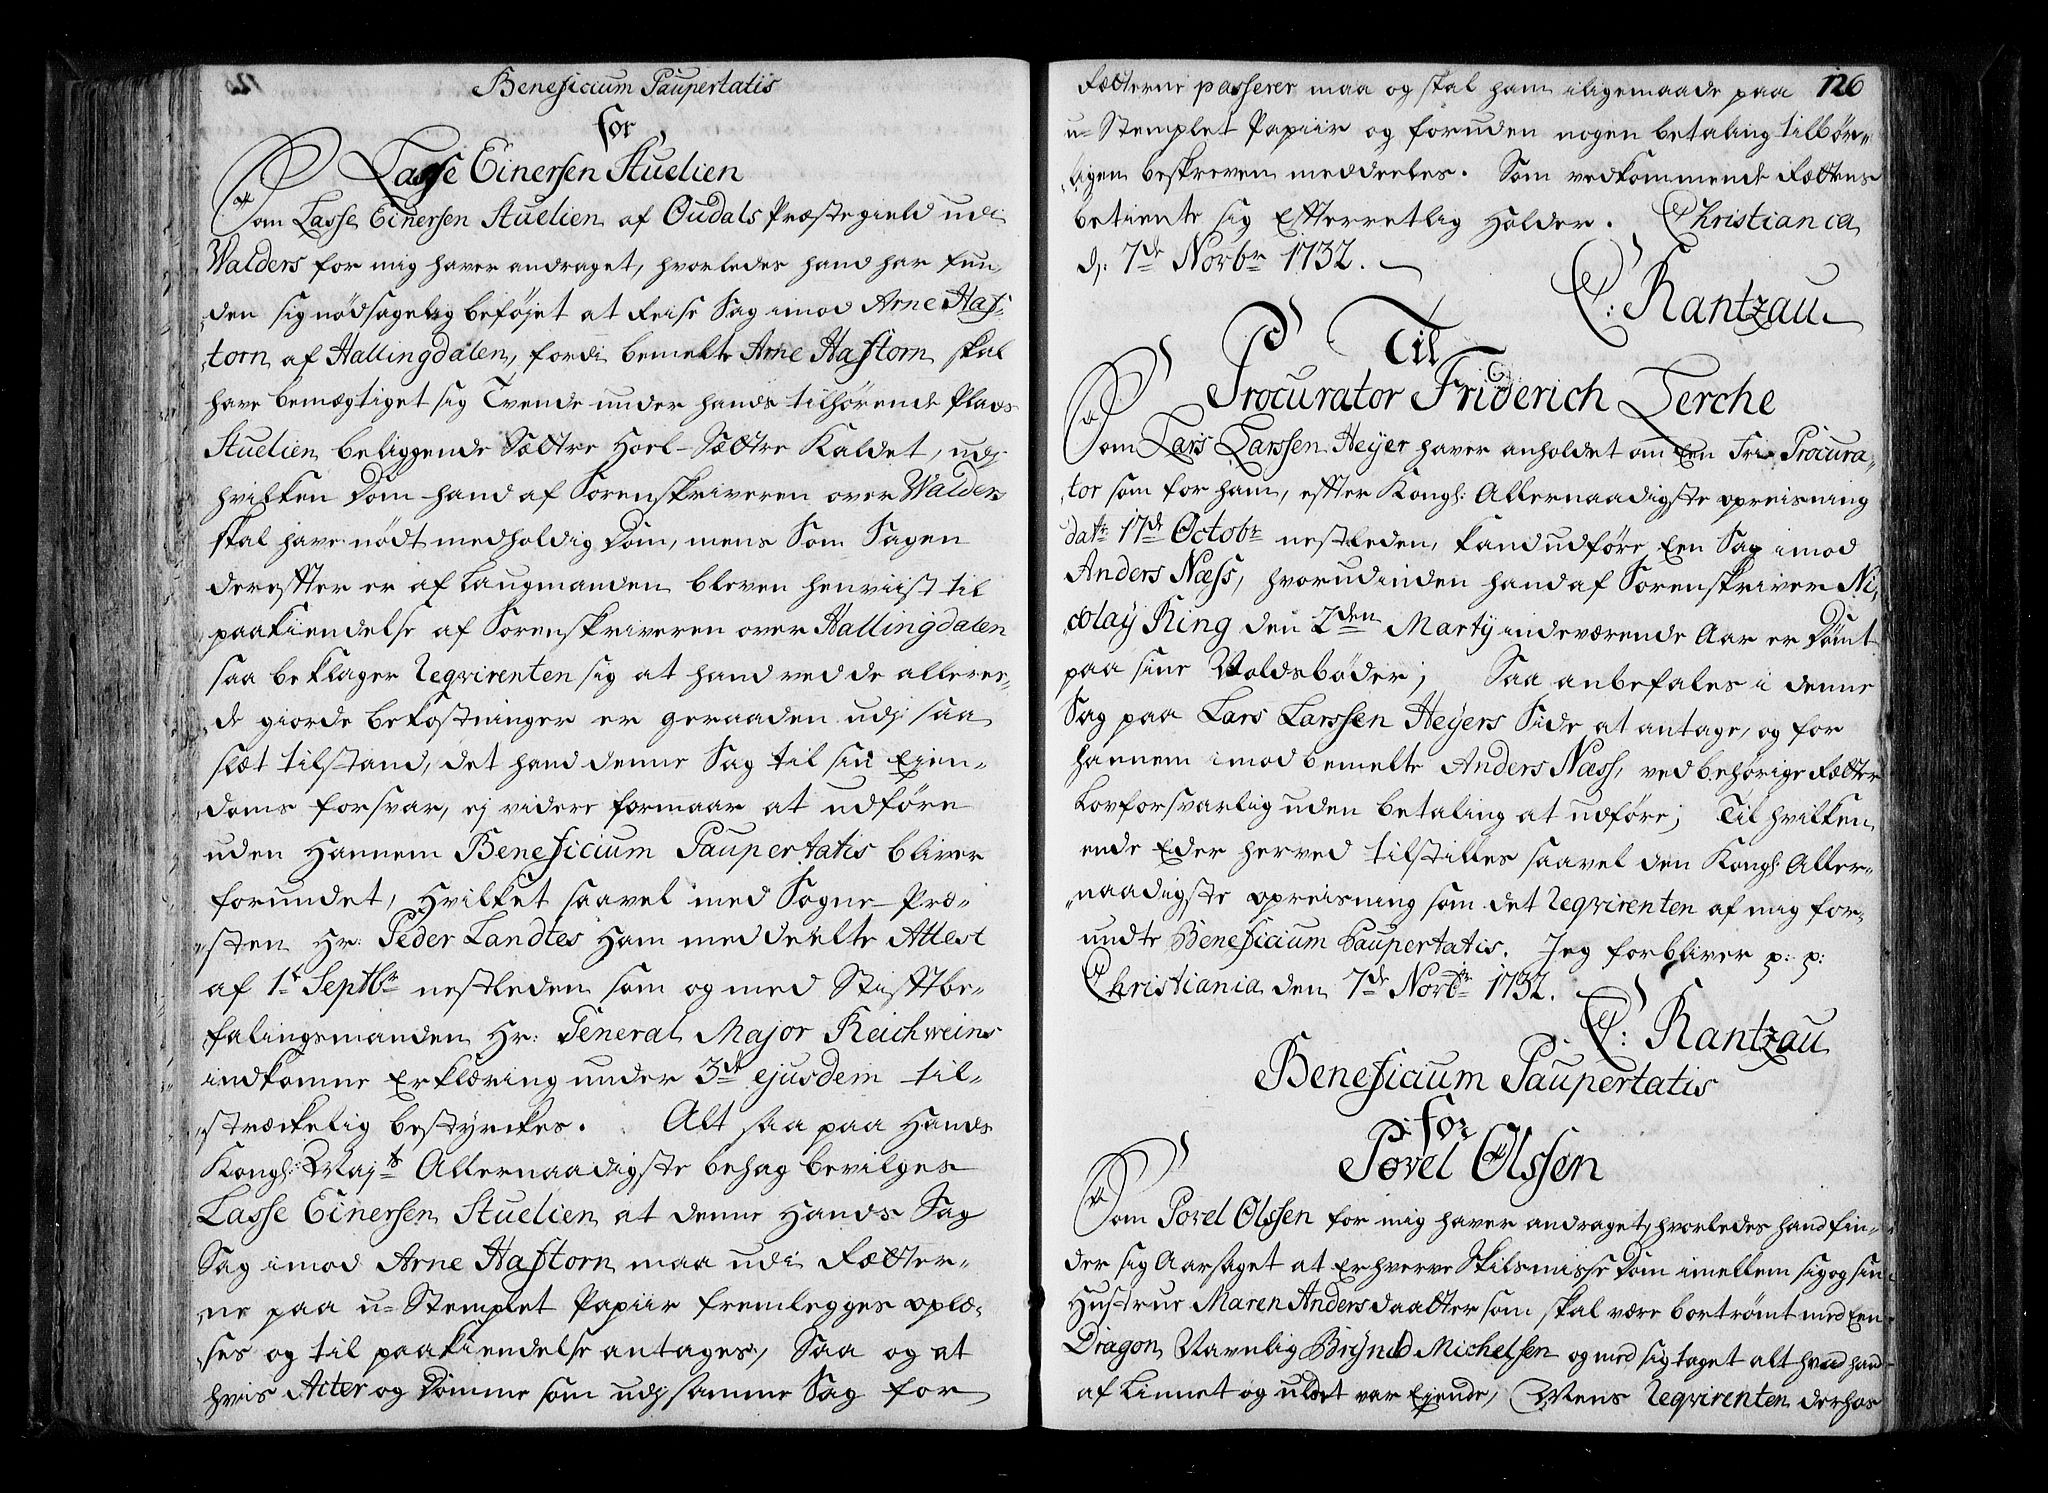 Beneficium Paupertatis
for
Lasse Einersen Stuelien
Som Lasse Einersen Stuelien af Oudals Præstegield udi
Walders for mig haver andraget, hvorledes hand har fun-
den sig nødsagelig beføjet at Reise Sag imod Arne Haf-
torn af Hallingdalen, fordi bemelte Arne Haftorn skal
have bemægtiget sig Tvende under hands tilhørende Plads
Stuelien beliggende Sættre Hoel-Sættre kaldet, udj
hvilken Dom hand af Sorenskriveren over Walders
skal have nødt medholdig Dom, mens Som Sagen
derefter er af Laugmanden bleven henviist til
paakiendelse af Sorenskriveren over Hallingdalen
saa beklager Reqvirenten sig at hand ved de allerre-
de giorde bekostninger er geraaden udj saa
slæt tilstand, det hand denne Sag til sin Ejen-
doms forsvar, ej videre formaar at udføre
uden Hannem Beneficium Paupertatis bliver
forundet, Hvilket saavel med Sogne-Præ-
sten Hr: Peder Landtes Ham meddeelte Attest
af 1t Septbr nestleden som og med Stiftbe-
falingsmanden Hr: General Major Reichweins
indkomne Erklæring under 3de ejusdem til-
strækkelig bestyrckes. Alt saa paa Hands
Kongl: Majts Allernaadigste behag bevilges
Lasse Einersen Stuelien at denne Hands Sag
Sag imod Arne Haftorn maa udi Rætter-
ne paa u-Stemplet Papiir fremlegges oplæ-
ses og til paakiendelse antages, Saa og at
hvis Acter og Domme som udj samme Sag for
126
Rætterne passerer maa og skal ham iligemaade paa
u-Stemplet Papiir og foruden nogen betaling tilbør-
ligen beskreven meddeeles. Som vedkommende Rættens
betiente sig Efterretlig Holder. Christianica
d: 7de Novbr 1732.
C: Rantzau
Til
Procurator Friderich Lerche
Som Lars Larssen Heyer haver anholdet om Een Fri Procura-
tor som for ham, efter Kongl: Allernaadigste opreisning
datr 17de Octobr nestleden, kand udføre Een Sag imod
Anders Næss, hvorudinden hand af Sorenskriver Ni-
colay Ring den 2den Martij indeværende Aar er Dømt
paa sine Voldsbøder; Saa anbefales i denne
Sag paa Lars Larssen Heyers Side at antage, og for
hannem imod bemelte Anders Næss, ved behørige Rætter
Lovforsvarlig uden betaling at udføre; Til hvilken
ende Eder herved tilstilles saavel den Kongl: Aller-
naadigste opreisning som det Reqvirenten af mig for-
undte Beneficium Paupertatis. Jeg forbliver p: p:
Christiania den 7de Novbr 1732.
C: Rantzau
Beneficium Paupertatis
for
Povel Olssen
Som Povel Olssen for mig haver andraget, hvorledes hand fin-
der sig Aarsaget at Erhverve Skilsmisse Dom imellem sig og sin
Hustrue Maren Andersdaatter som skal være bortrømt med Een
Dragon Navnlig Brynild Michelsen og med sig taget alt hvad hand
af Linnet og uldet var Ejende, Mens Reqvirenten derhos